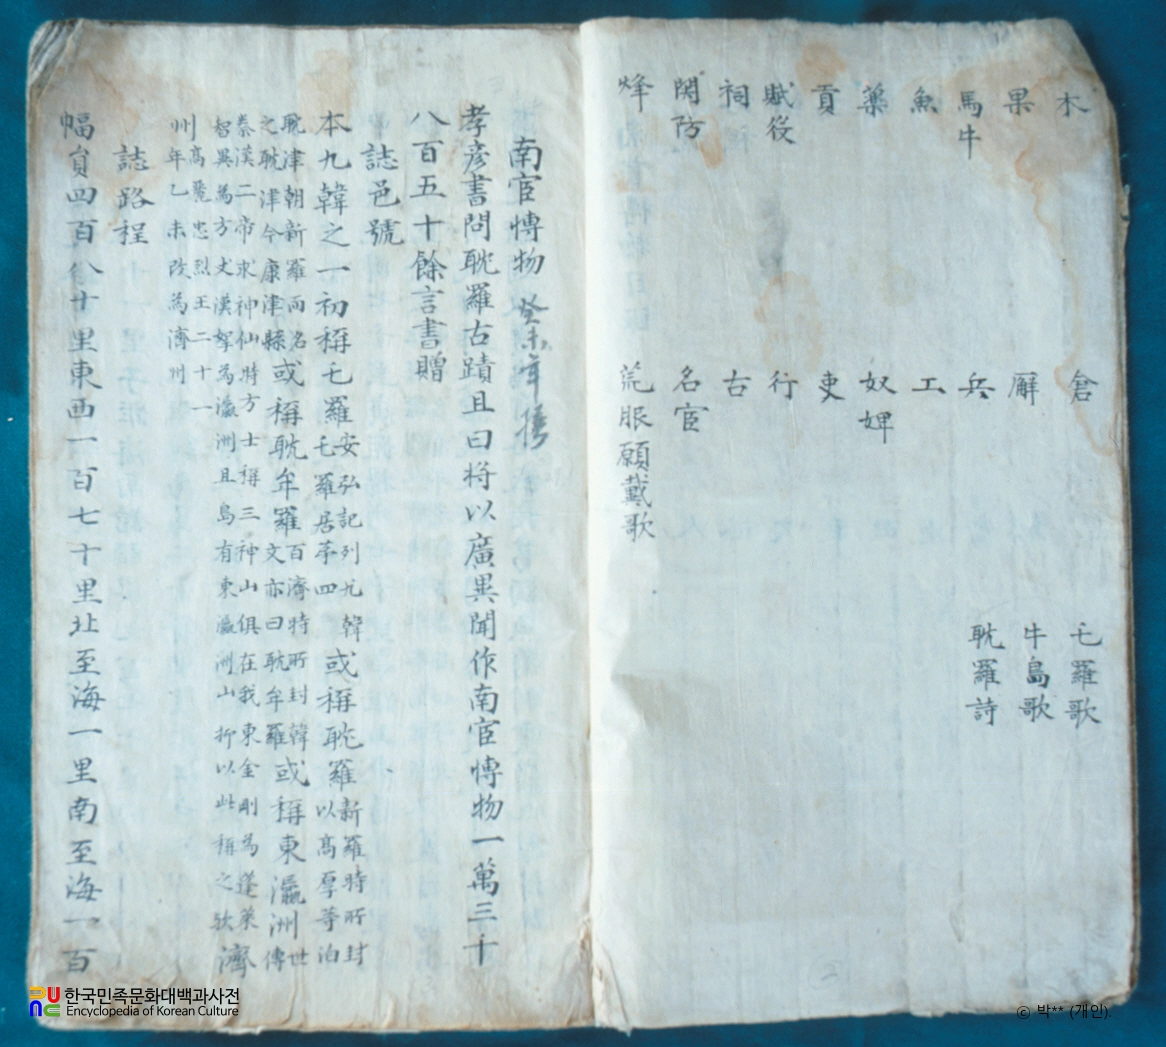 木
果
馬牛
魚
藥
貢
賦役
祠
関防
烽
倉
廨
兵
工
奴婢
吏
行
古
名宦
荒服願戴歌
乇羅歌
牛島歌
耽羅詩
南宦博物 癸未年撰
孝彦書問耽羅古蹟且曰将以廣異聞作南宦博物一萬三千
八百五十餘言書贈
誌邑號
本九韓之一初稱乇羅安弘記列九韓乇羅居第四或稱耽羅新羅時所封以高厚等泊
耽津朝新羅而名之耽津今康津縣或稱耽牟羅百濟時所封韓文亦曰耽牟羅或稱東瀛洲世傳
秦漢二帝求神仙時方士稱三神山俱在我東金剛為蓬萊智異為方丈漢拏為瀛洲且島有東瀛洲山抑以此稱之欤濟
州高麗忠烈王二十一年乙未改為濟州
誌路程
幅員四百八十里東西一百七十里北至海一里南至海一百
한국민족문화대백과사전
Encyclopedia of Korean Culture
© 박** (개인).